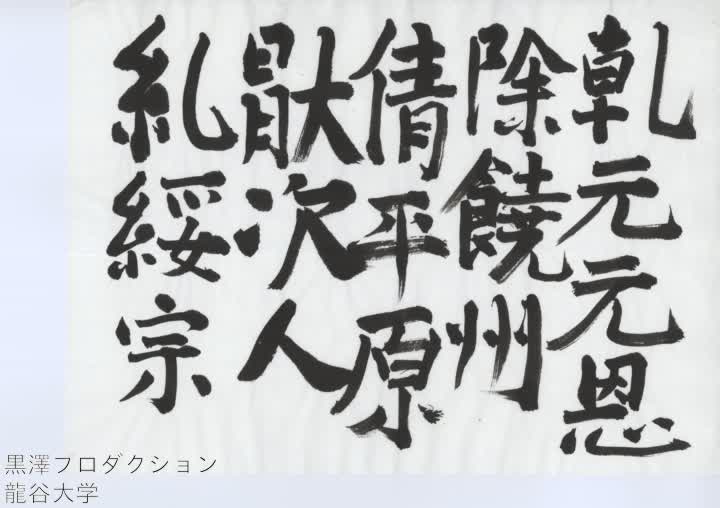 乹元元恩
除饒州
倩平原
猒次人
糺綏宗
黒澤プロダクション
龍谷大学